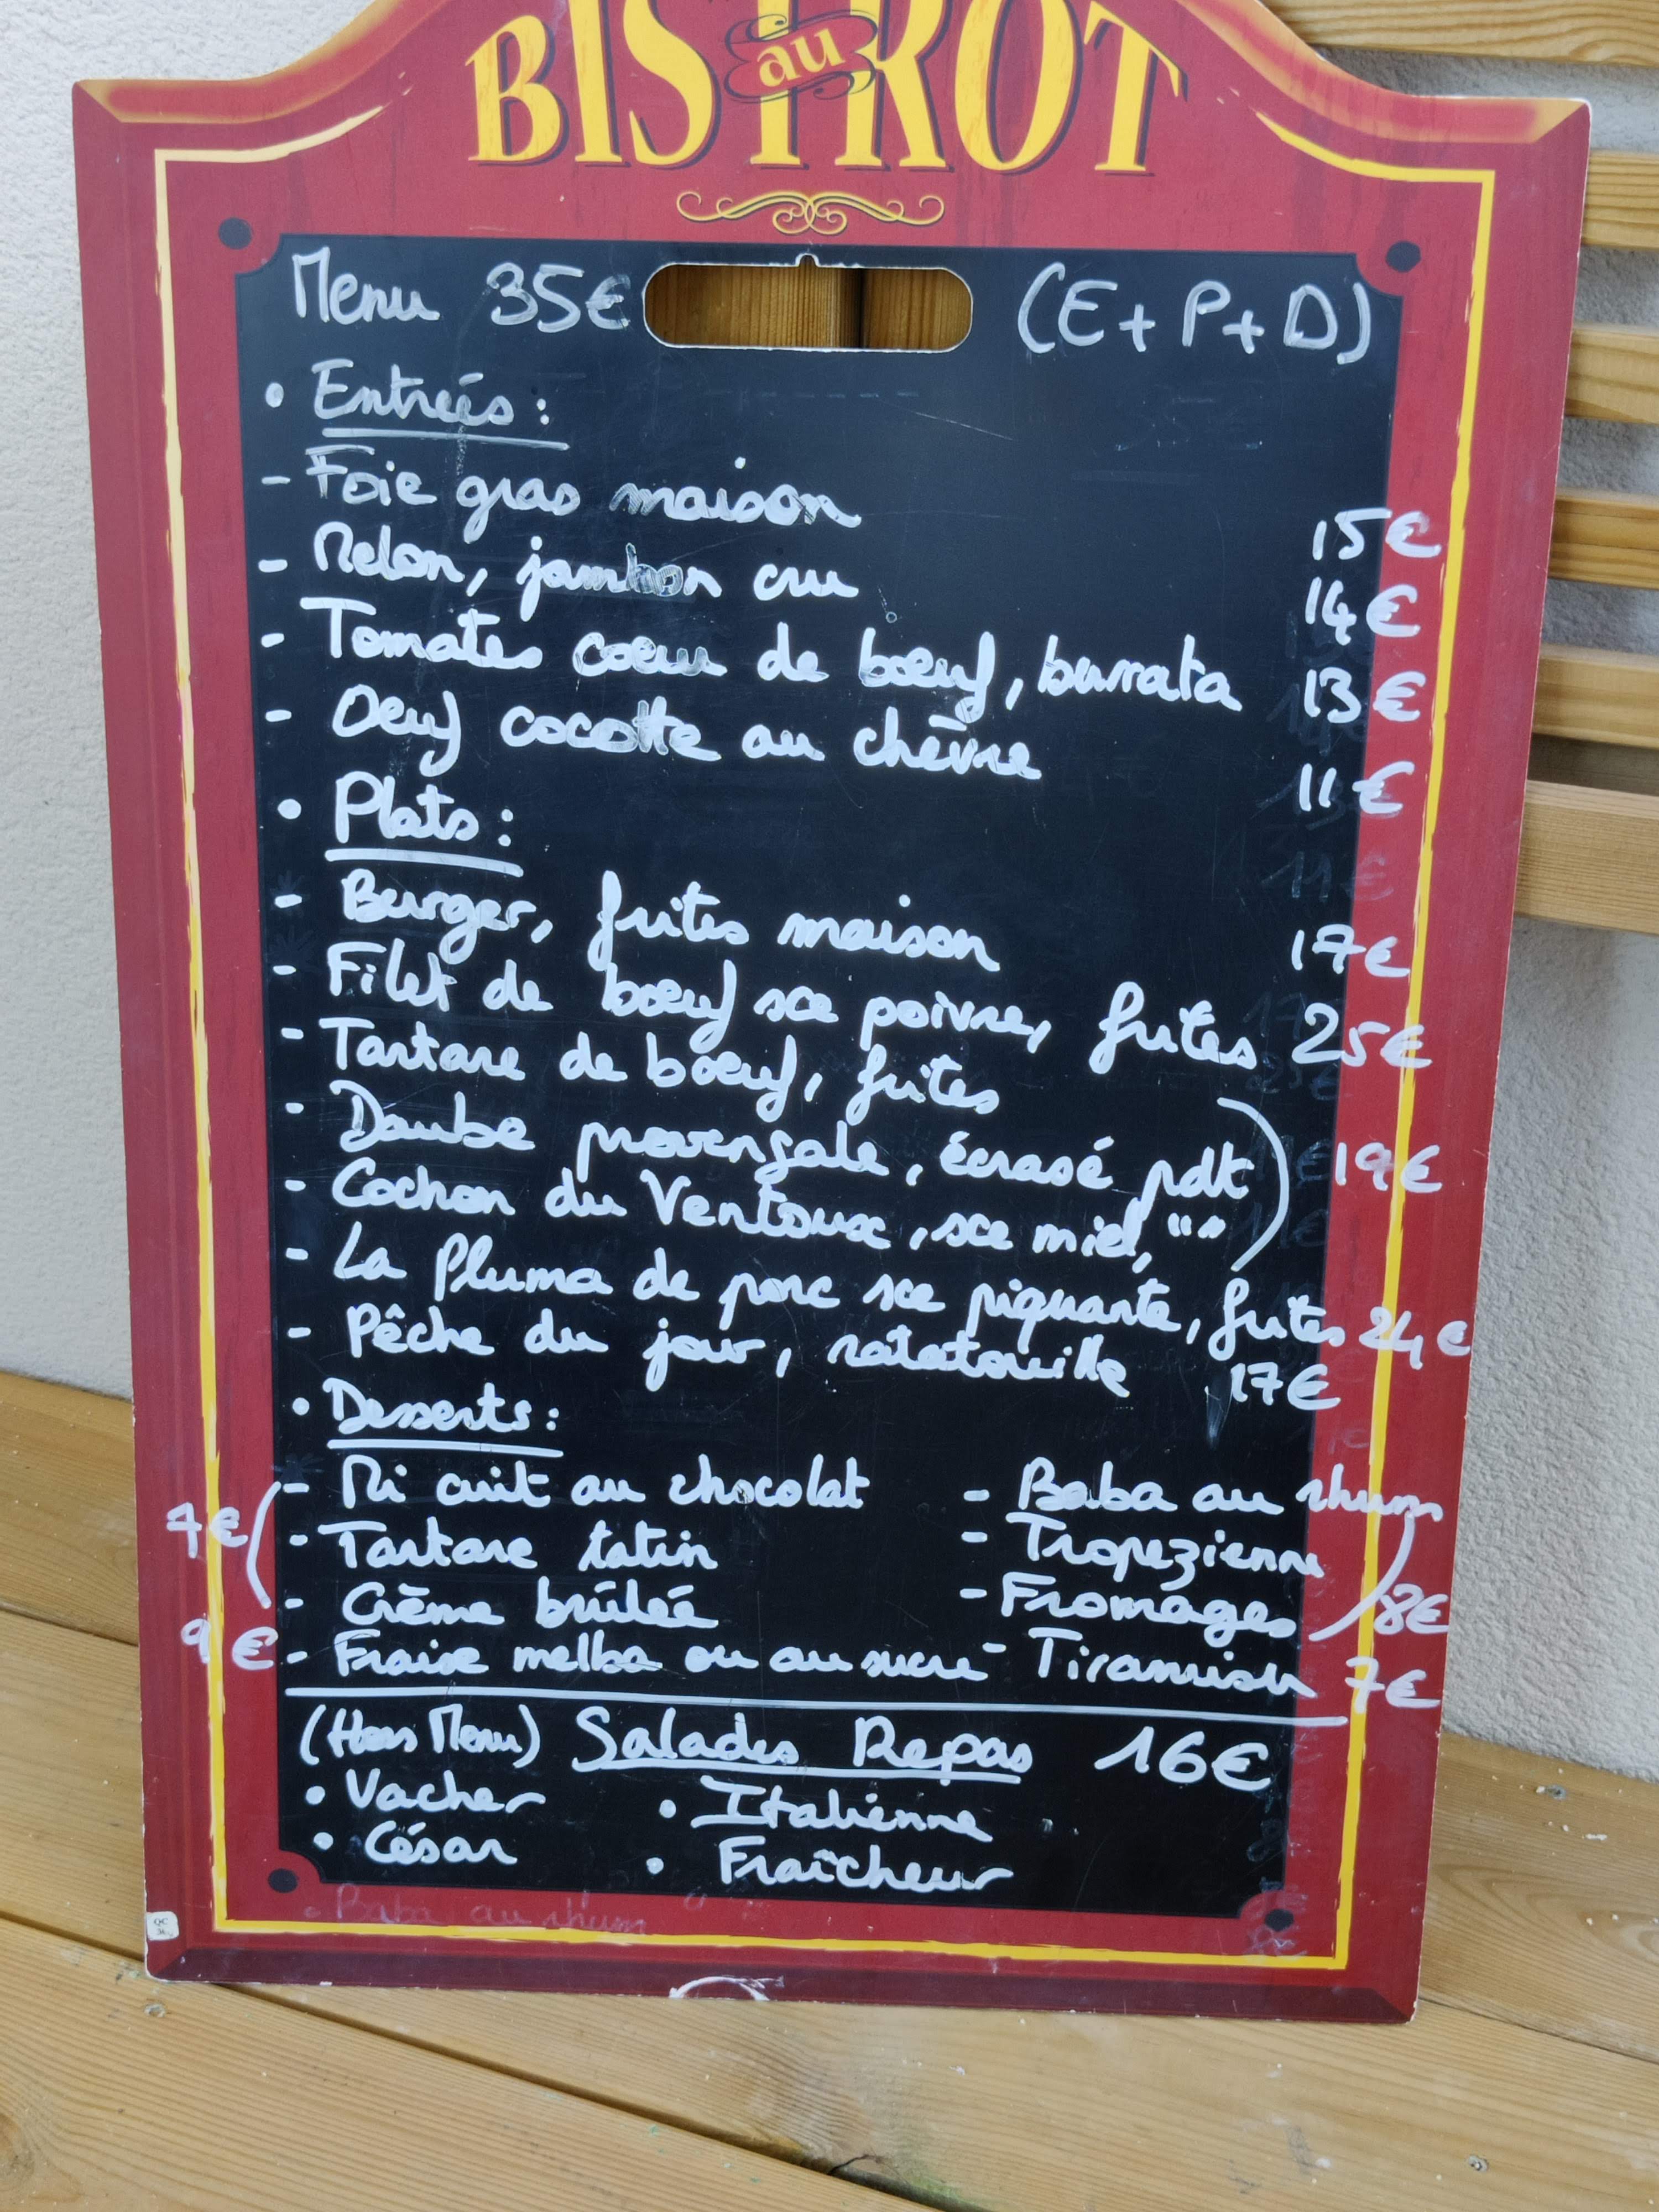 BISTROT
au
Menu 35€ (E+P+D)
• Entrées :
- Foie gras maison 15€
- Melon, jambon cru 14€
- Tomates coeur de boeuf, burrata 13€
- Oeuf cocotte au chèvre 11€
• Plats :
- Burger, frites maison 17€
- Filet de boeuf sce poivre, frites 25€
- Tartare de boeuf, frites
- Daube provençale, écrasé pdt 19€
- Cochon du Ventoux, sce miel, ""
- La Pluma de porc sce piquante, frites 24€
- Pêche du jour, ratatouille 17€
• Desserts :
- Mi cuit au chocolat - Baba au rhum
7€ - Tartare tatin - Tropezienne
- Crème brûlée - Fromages 8€
9€ - Fraise melba ou au sucre - Tiramisu 7€
(Hors Menu) Salades Repas 16€
• Vacher • Italienne
• César • Fraîcheur
• Baba au rhum